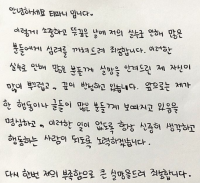 안녕하세요 태하니 입니다.
이렇게 소중하고 뜻깊은 날에 저의 실수로 인해 많은
분들에게 심려를 끼쳐드려 죄송합니다. 이러한
실수로 인해 많은 분들께 실망을 안겨드린 제 자신이
많이 부끄럽고 깊이 반성하고 있습니다. 앞으로는 제가
한 행동이나 글들이 많은 분들께 보여지고 있음을
명심하고 이러한 일이 없도록 항상 신중히 생각하고
행동하는 사람이 되도록 노력하겠습니다.
다시 한번 저의 부족함으로 큰 실망을드려 죄송합니다.